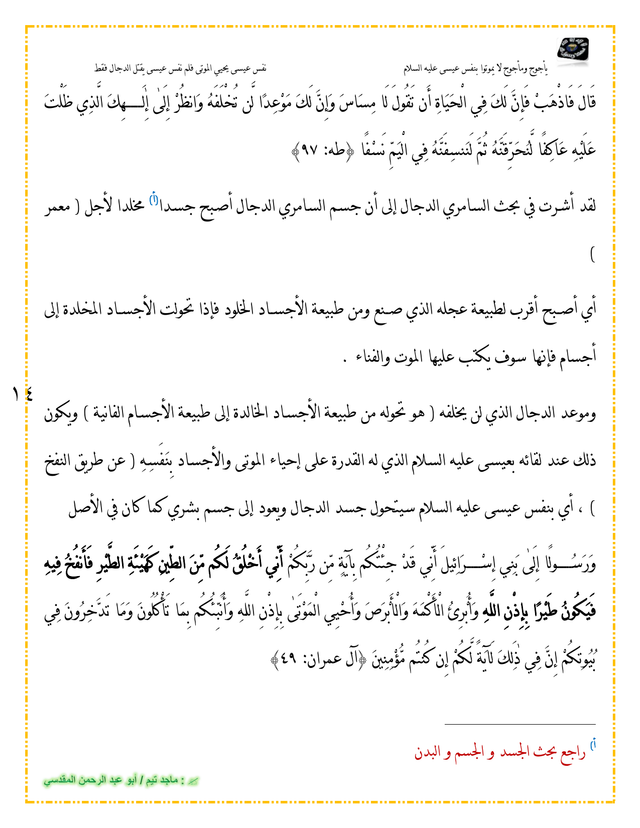 يأجوج ومأجوج لا يموتوا بنفس عيسى عليه السلام
نفس عيسى يحيي الموتى فلم نفس عيسى يقتل الدجال فقط
قَالَ فَاذْهَبْ فَإِنَّ لَكَ فِي الْحَيَاةِ أَن تَقُولَ لَا مِسَاسَ وَإِنَّ لَكَ مَوْعِدًا لَّن تُخْلَفَهُ وَانظُرْ إِلَىٰ إِلَـــهِكَ الَّذِي ظَلْتَ
عَلَيْهِ عَاكِفًا لَّنُحَرِّقَنَّهُ ثُمَّ لَنَنسِفَنَّهُ فِي الْيَمِّ نَسْفًا ﴿طه: ٩٧﴾
لقد أشرت في بحث السامري الدجال إلى أن جسم السامري الدجال أصبح جسدا(أ) مخلدا لأجل ( معمر
)
أي أصبح أقرب لطبيعة عجله الذي صنع ومن طبيعة الأجساد الخلود فإذا تحولت الأجساد المخلدة إلى
أجسام فإنها سوف يكتب عليها الموت والفناء .
١٤
وموعد الدجال الذي لن يخلفه ( هو تحوله من طبيعة الأجساد الخالدة إلى طبيعة الأجسام الفانية ) ويكون
ذلك عند لقائه بعيسى عليه السلام الذي له القدرة على إحياء الموتى والأجساد بنَفَسِهِ ( عن طريق النفخ
) ، أي بنفس عيسى عليه السلام سيتحول جسد الدجال ويعود إلى جسم بشري كما كان في الأصل
وَرَسُـــولًا إِلَىٰ بَنِي إِسْـــرَائِيلَ أَنِّي قَدْ جِئْتُكُم بِآيَةٍ مِّن رَّبِّكُمْ أَنِّي أَخْلُقُ لَكُم مِّنَ الطِّينِ كَهَيْئَةِ الطَّيْرِ فَأَنفُخُ فِيهِ
فَيَكُونُ طَيْرًا بِإِذْنِ اللَّهِ وَأُبْرِئُ الْأَكْمَهَ وَالْأَبْرَصَ وَأُحْيِي الْمَوْتَىٰ بِإِذْنِ اللَّهِ وَأُنَبِّئُكُم بِمَا تَأْكُلُونَ وَمَا تَدَّخِرُونَ فِي
بُيُوتِكُمْ إِنَّ فِي ذَٰلِكَ لَآيَةً لَّكُمْ إِن كُنتُم مُّؤْمِنِينَ ﴿آل عمران: ٤٩﴾
أ) راجع بحث الجسد و الجسم و البدن
: ماجد تيم / أبو عبد الرحمن المقدسي